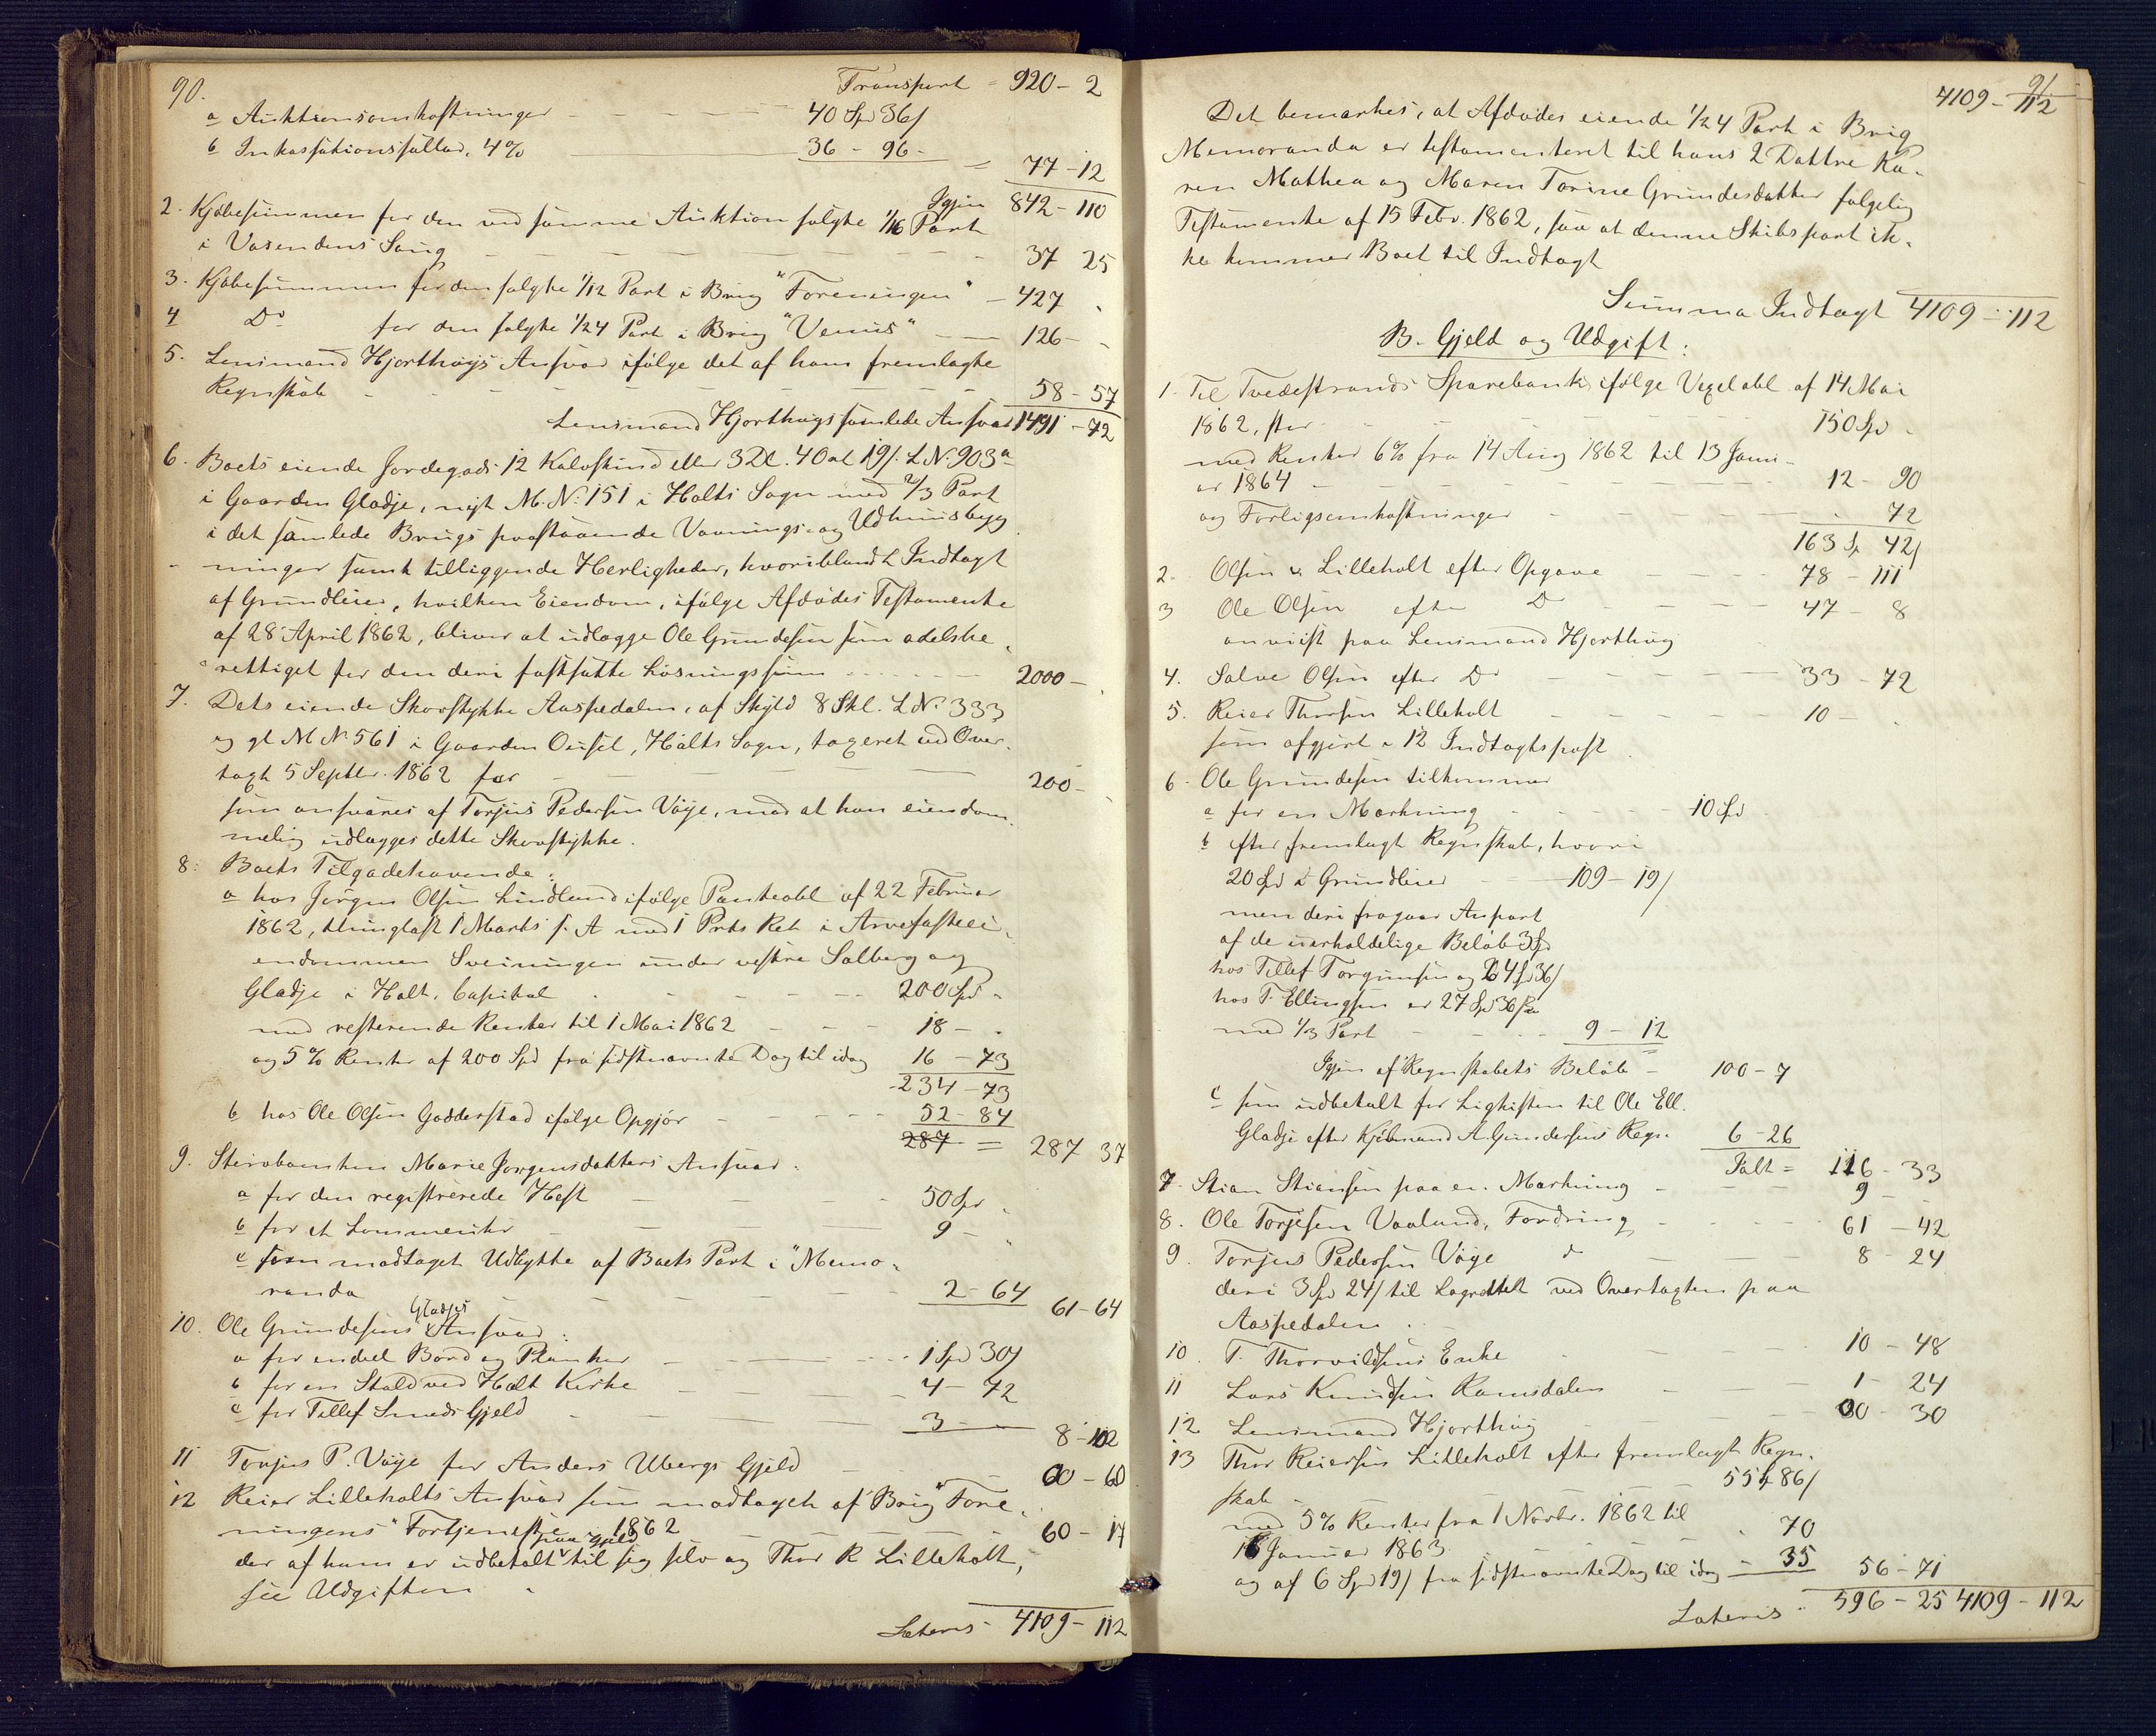 90.
Transport = 920 - 2
a Auktionsomkostninger - - - - 40 Spd 36/
b Inkassationssallær, 4% 36 - 96 - = 77 - 12
Igjen 842 - 110
2. Kjøbesummen for den ved samme Auktion solgte 1/16 Part
i Vasendens Saug - - - - - 37 25
3. Kjøbesummen for den solgte 1/12 Part i Brig "Foreningen" - 427 -
4 Do for den solgte 1/24 Part i Brig "Venus" - - 126 - -
5. Lensmand Hjorthougs Ansvar ifølge det af ham fremlagte
Regnskab - - - - - 58 - 57
Lensmand Hjorthougs samlede Ansvar 1491 - 72
6. Boets eiende Jordegods 12 Kalvskind eller 3 Dl. 4 Ort 19/. L.No. 903a
i Gaarden Gladje, nyt M.No. 151 i Holts Sogn med 2/3 Part
i det samlede Brugs paastaaende Vaanings- og Udhuusbyg
ninger samt tilliggende Herligheder, hvoriblandt Indtægt
af Grundleier, hvilken Eiendom, ifølge Afdødes Testamente
af 28 April 1862, bliver at udlægge Ole Grundesen som odelsbe-
rettiget for den deri fastsatte Løsningssum - - - 2000 - -
7. Dets eiende Skovstykke Aaspedalen, af Skyld 8 Skl. L No. 333
og gl M No. 561 i Gaarden Ousel, Holts Sogn, taxeret ved Over-
tagt 5 Septbr. 1862 for - - - 200 -
som ansvares af Torjus Pedersen Vöje, mod at han eiendom-
melig udlægges dette Skovstykke.
8. Boets Tilgodehavende:
a hos Jörgen Olsen Lindland ifølge Panteobl af 22 Februar
1862, thinglæst 1 Marts s. A med 1 Prts Ret i Arvefæsteei-
endommen Sveiningen under vestre Solberg og
Gladje i Holt, Capital - - - 200 Spd -
med resterende Renter til 1 Mai 1862 - - - 18 - -
og 5% Renter af 200 Spd fra sidstnævnte Dag til idag 16 - 73
234 - 73
b hos Ole Olsen Godderstad ifølge Opgjør - - - 52 - 84
287 = 287 37
9. Stervboenken Marie Jørgensdatters Ansvar:
a for den registrerede Hest - - 50 Spd -
b for et Lommeuhr - - 9 - -
c som modtaget Udbytte af Boets Part i "Memo-
randa - - - 2 - 64 61 - 64
10. Ole Grundesens Gladjes Ansvar:
a for endeel Bord og Planker - - - 1 Spd 30/
b for en Stald ved Holt Kirke - - 4 - 72
c for Tellef Smeds Gjeld - - 3 - - 8 - 102
11 Torjus P. Vöje for Anders Ubergs Gjeld - - 00 - 60
12 Reier Lilleholts Ansvar som modtaget af Brig "Fore-
ningens" Fortjeneste 1862 60 - 17
der af ham er udbetalt paa Gjeld til sig selv og Thor R Lilleholt,
see Udgiften -
Lateris - 4109 - 112
91
4109 - 112
Det bemærkes, at Afdødes eiende 1/24 Part i Brig
Memoranda er testamenteret til hans 2 Døttre Ka-
ren Mathea og Maren Torine Grundesdatter følgelig
Testamente af 15 Febr. 1862, saa at denne Skibspart ik-
ke kommer Boet til Indtægt
Summa Indtægt 4109 - 112
B. Gjeld og Udgift:
1. Til Tvedestrands Sparebank ifølge Vexelobl af 14 Mai
1862, stor - - - 150 Spd -
med Renter 6% fra 14 Aug 1862 til 13 Janu-
ar 1864 - - - 12 - 90
og Forligsomkostninger - - - 72
163 Sp 42/
2. Olsen & Lilleholt efter Opgave - - - 78 - 111
3 Ole Olsen efter Do - - - 47 - 8
anviist paa Lensmand Hjorthoug
4. Salve Olsen efter Do - - - 33 - 72
5. Reier Thorsen Lilleholt - - - 10 - -
som afgjort i 12 Indtægtspost
6. Ole Grundesen tilkommer
a for en Mærkning - - - 10 Spd
b efter fremlagt Regnskab, hvori
20 Spd i Grundleier - - 109 - 19/
men deri fragaar Anpart
af de uerholdelige Beløb 3 Spd
hos Tellef Torgrimsen og 24 Spd 36/
hos T. Ellingsen er 27 Spd 36/
med 1/3 Part - - - 9 - 12
Igjen af Regnskabets Beløb - 100 - 7
c som udbetalt for Ligkisten til Ole Ell.
Gladje efter Kjøbmand A. Gundersens Regn. 6 - 26
Ialt = 116 - 33
7. Stian Stiansen paa en Mærkning - - - 9 - -
8. Ole Torjesen Vaaland, Fordring - - - 61 - 42
9. Torjus Pedersen Vöje d - - 8 - 24
deri 3 Spd 24/ til Lagrettet ved Overtagten paa
Aaspedalen -
10. T. Thorvildsens Enke - - - 10 - 48
11 Lars Knudsen Ramsdalen - - - 1 - 24
12 Lensmand Hjorthoug - - - 00 - 30
13 Thor Reiersen Lilleholt efter fremlagt Regn-
skab - - 55 Sp 86/
med 5% Renter fra 1 Novbr. 1862 til
16 Januar 1863 - 70
og af 6 Spd 19/ fra sidstnævnte Dag til idag - 35 56 - 71
Lateris - 596 - 25 4109 - 112